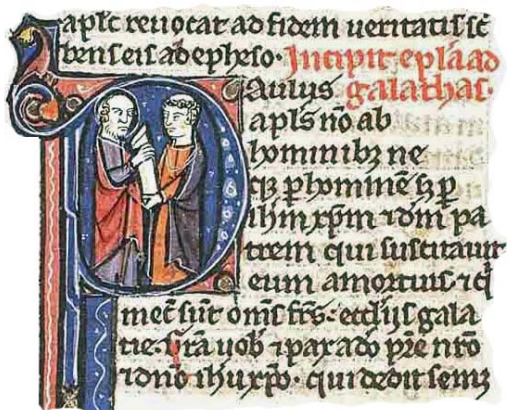 aplc reuocat ad fidem ueritatis sc
bens eis ab epheso. Incipit epla ad
Paulus galathas.
apls nō ab
hominibz ne
cz p hominē sz p
ihm xpm ⁊ dm pa
trem qui suscitauit
eum a mortuis. ⁊ q̄
mecū sūt oms frs. ecclijs gala
tie. Gra uob ⁊ pax a do p̄re nr̄o
⁊ dn̄o ihu xp̄o. qui dedit semz